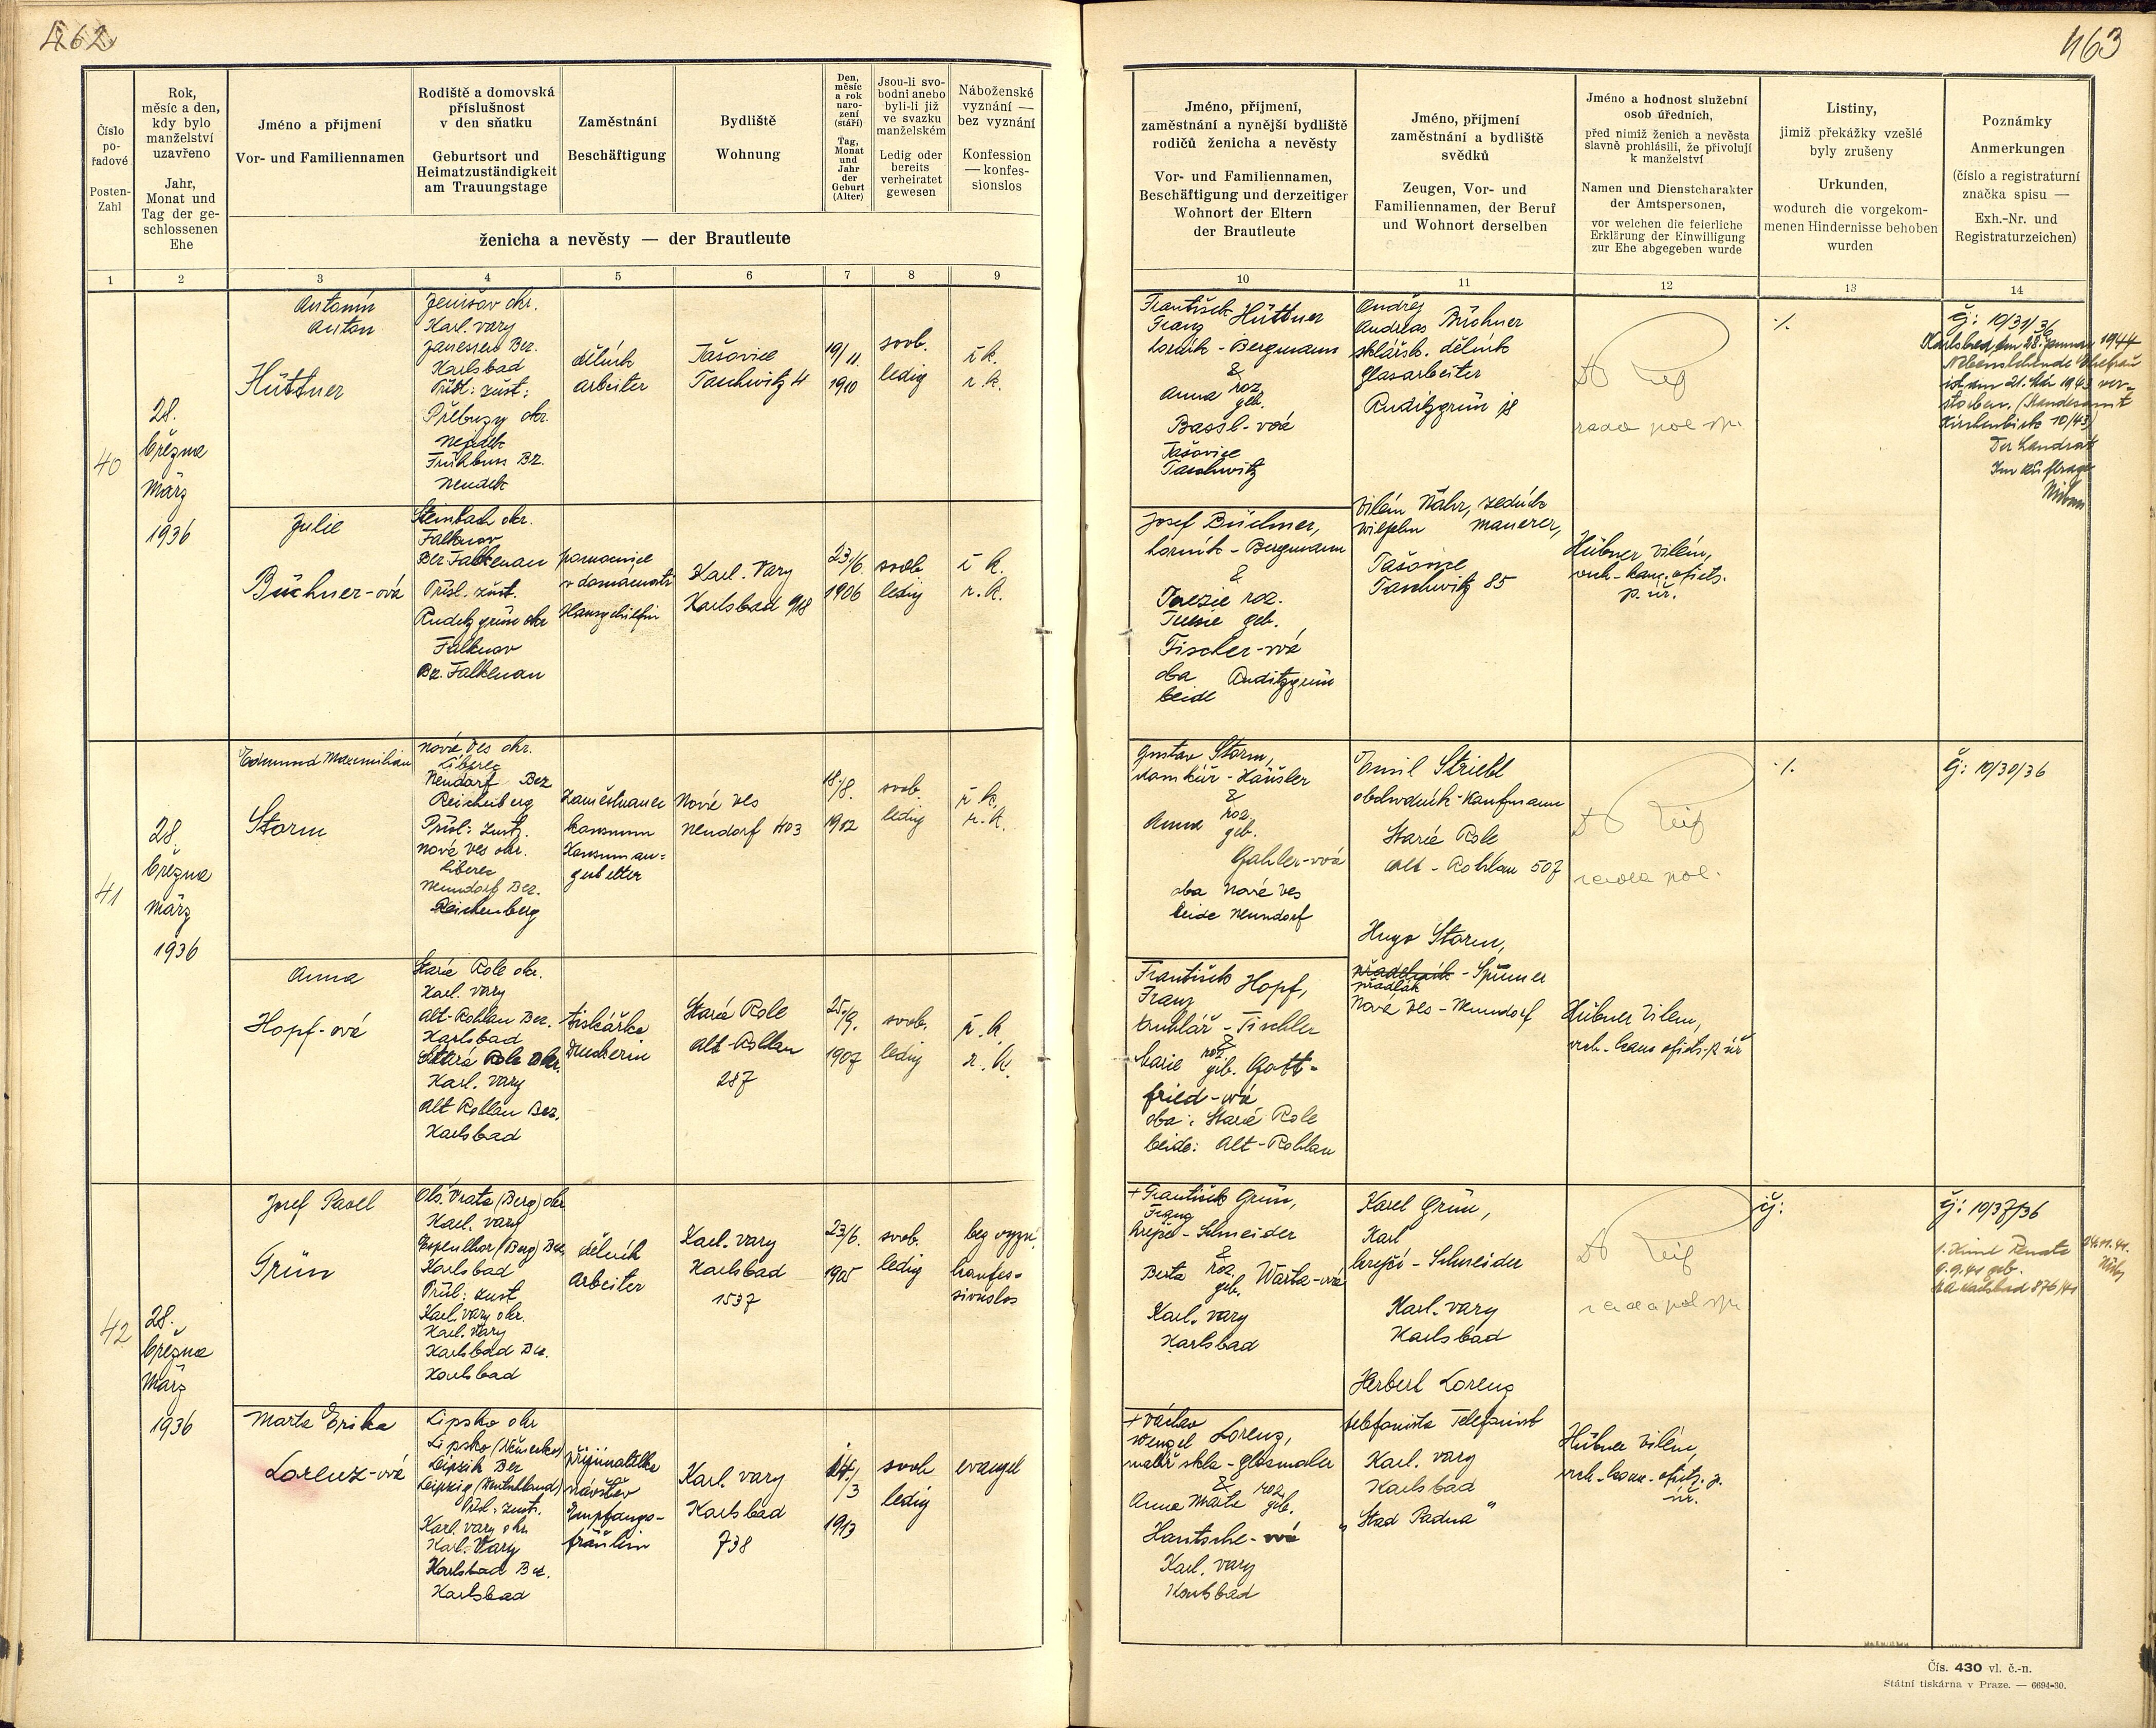 462
463
Číslo po-řadové
Posten-Zahl
Rok, měsíc a den, kdy bylo manželství uzavřeno
Jahr, Monat und Tag der ge-schlossenen Ehe
Jméno a příjmení
Vor- und Familiennamen
Rodiště a domovská příslušnost v den sňatku
Geburtsort und Heimatzuständigkeit am Trauungstage
Zaměstnání
Beschäftigung
Bydliště
Wohnung
Den, měsíc a rok naro-zení (stáří)
Tag, Monat und Jahr der Geburt (Alter)
Jsou-li svo-bodni anebo byli-li již ve svazku manželském
Ledig oder bereits verheiratet gewesen
Náboženské vyznání — bez vyznání
Konfession — konfes-sionslos
ženicha a nevěsty — der Brautleute
Jméno, příjmení, zaměstnání a nynější bydliště rodičů ženicha a nevěsty
Vor- und Familiennamen, Beschäftigung und derzeitiger Wohnort der Eltern der Brautleute
Jméno, příjmení zaměstnání a bydliště svědků
Zeugen, Vor- und Familiennamen, der Beruf und Wohnort derselben
Jméno a hodnost služební osob úředních,
před nimiž ženich a nevěsta slavně prohlásili, že přivolují k manželství
Namen und Dienstcharakter der Amtspersonen,
vor welchen die feierliche Erklärung der Einwilligung zur Ehe abgegeben wurde
Listiny,
jimiž překážky vzešlé byly zrušeny
Urkunden,
wodurch die vorgekom-menen Hindernisse behoben wurden
Poznámky
Anmerkungen
(číslo a registraturní značka spisu —
Exh.-Nr. und Registraturzeichen)
1 2 3 4 5 6 7 8 9 10 11 12 13 14
40
28.
března
März
1936
Antonín
Anton
Hüttner
Jenišov okr.
Karl. vary
Janessen Bez.
Karlsbad
Přísl: zust:
Přebuzy okr.
Nejdek
Frühbuss Bz.
Neudek
dělník
Arbeiter
Tašovice
Taschwitz 4
19/11.
1910
svob.
ledig
ř. k.
r. k.
František
Franz Hüttner
horník - Bergmann
&
Anna roz.
geb.
Bassl-ová
Tašovice
Taschwitz
Ondřej
Andreas Büchner
sklářsk. dělník
Glasarbeiter
Ruditzgrün 18
rada pol.
./.
čj: 10/31/36
Karlsbad, am 28. Januar 1944
Nebenstehende Ehefrau
ist am 21. Mai 1943 ver-
storben. (Standesamt
Kirchenbirk 10/43)
Der Landrat
Im Auftrage
Julie
Büchner-ová
Steinbach okr.
Falknov
Bez Falkenau
Přísl. zust.
Ruditzgrün okr
Falknov
Bz. Falkenau
pomocnice
v domácnosti
Hausgehilfin
Karl. Vary
Karlsbad 918
23/6.
1906
svob
ledig
ř. k.
r. k.
Josef Büchner,
horník - Bergmann
&
Terezie roz.
Theresie geb.
Fischer-ová
oba Ruditzgrün
beide
Vilém Nähr, zedník
Wilhelm Maurer,
Tašovice
Taschwitz 85
Hübner Vilém,
vrch. kanc. ofic.
p. úř.
41
28.
března
März
1936
Edmund Maxmilian
Storm
Nová Ves okr.
Liberec
Neudorf Bez
Reichenberg
Přísl: zust.
Nová Ves okr.
Liberec
Neundorf Bez.
Reichenberg
Zaměstnanec
konsumu
Konsuman-
gestellter
Nová Ves
Neudorf 403
18./8.
1902
svob.
ledig
ř. k.
r. k.
Gustav Storm,
domkář - Häusler
&
Anna roz.
geb.
Gahler-ová
oba Nová Ves
beide Neundorf
Emil Striebl
obchodník - Kaufmann
Stará Role
Alt - Rohlau 507
rada pol.
./.
čj: 10/30/36
Anna
Hopf-ová
Stará Role okr.
Karl. vary
Alt-Rohlau Bez.
Karlsbad
Stará Role okr.
Karl. vary
Alt Rohlau Bez.
Karlsbad
tiskařka
Druckerin
Stará Role
Alt-Rohlau
287
25./9.
1907
svob.
ledig
ř. k.
r. k.
František
Franz Hopf,
truhlář - Tischler
&
Marie roz.
geb. Gott-
fried-ová
oba: Stará Role
beide: Alt-Rohlau
Hugo Storm,
přadelník - Spinner
přadlák
Nová Ves - Neundorf
Hübner Vilém,
vrch. kanc. ofic. p. úř
42
28.
března
März
1936
Josef Pavel
Grün
Olš. Vrata (Berg) okr
Karl. vary
Espenthor (Berg) Bez.
Karlsbad
Přísl: zust
Karl. vary okr.
Karl. Vary
Karlsbad Bez.
Karlsbad
dělník
Arbeiter
Karl. vary
Karlsbad
1537
23/6.
1905
svob.
ledig
bez vyzn.
konfes-
sionslos
+ František Grün,
Franz
krejčí - Schneider
&
Berta roz.
geb. Warta-ová
Karl. vary
Karlsbad
Karel Grün,
Karl
krejčí - Schneider
Karl. vary
Karlsbad
rada pol.
čj:
čj: 10/37/36
1. Kind Renate
9.9.41 geb.
StA Karlsbad 876/41
Marta Erika
Lorenz-ová
Lipsko okr
Lipsko (Německo)
Leipzik Bez
Leipzig (Deutschland)
Přísl. zust.
Karl. vary okr.
Karl. Vary
Karlsbad Bez.
Karlsbad
přijímatelka
návštěv
Empfangs-
fräulein
Karl. vary
Karlsbad
738
14./3
1913
svob
ledig
evangel
+ Václav
Wenzel Lorenz,
malíř skla - Glasmaler
&
Anna Marta roz.
geb.
Hantsche-ová
Karl. vary
Karlsbad
Herbert Lorenz
telefonista Telefonist
Karl. vary
Karlsbad
„Stad Padua“
Hübner Vilém,
vrch. kanc. ofic. p.
úř.
Čís. 430 vl. č.-n.
Státní tiskárna v Praze. — 6694-30.